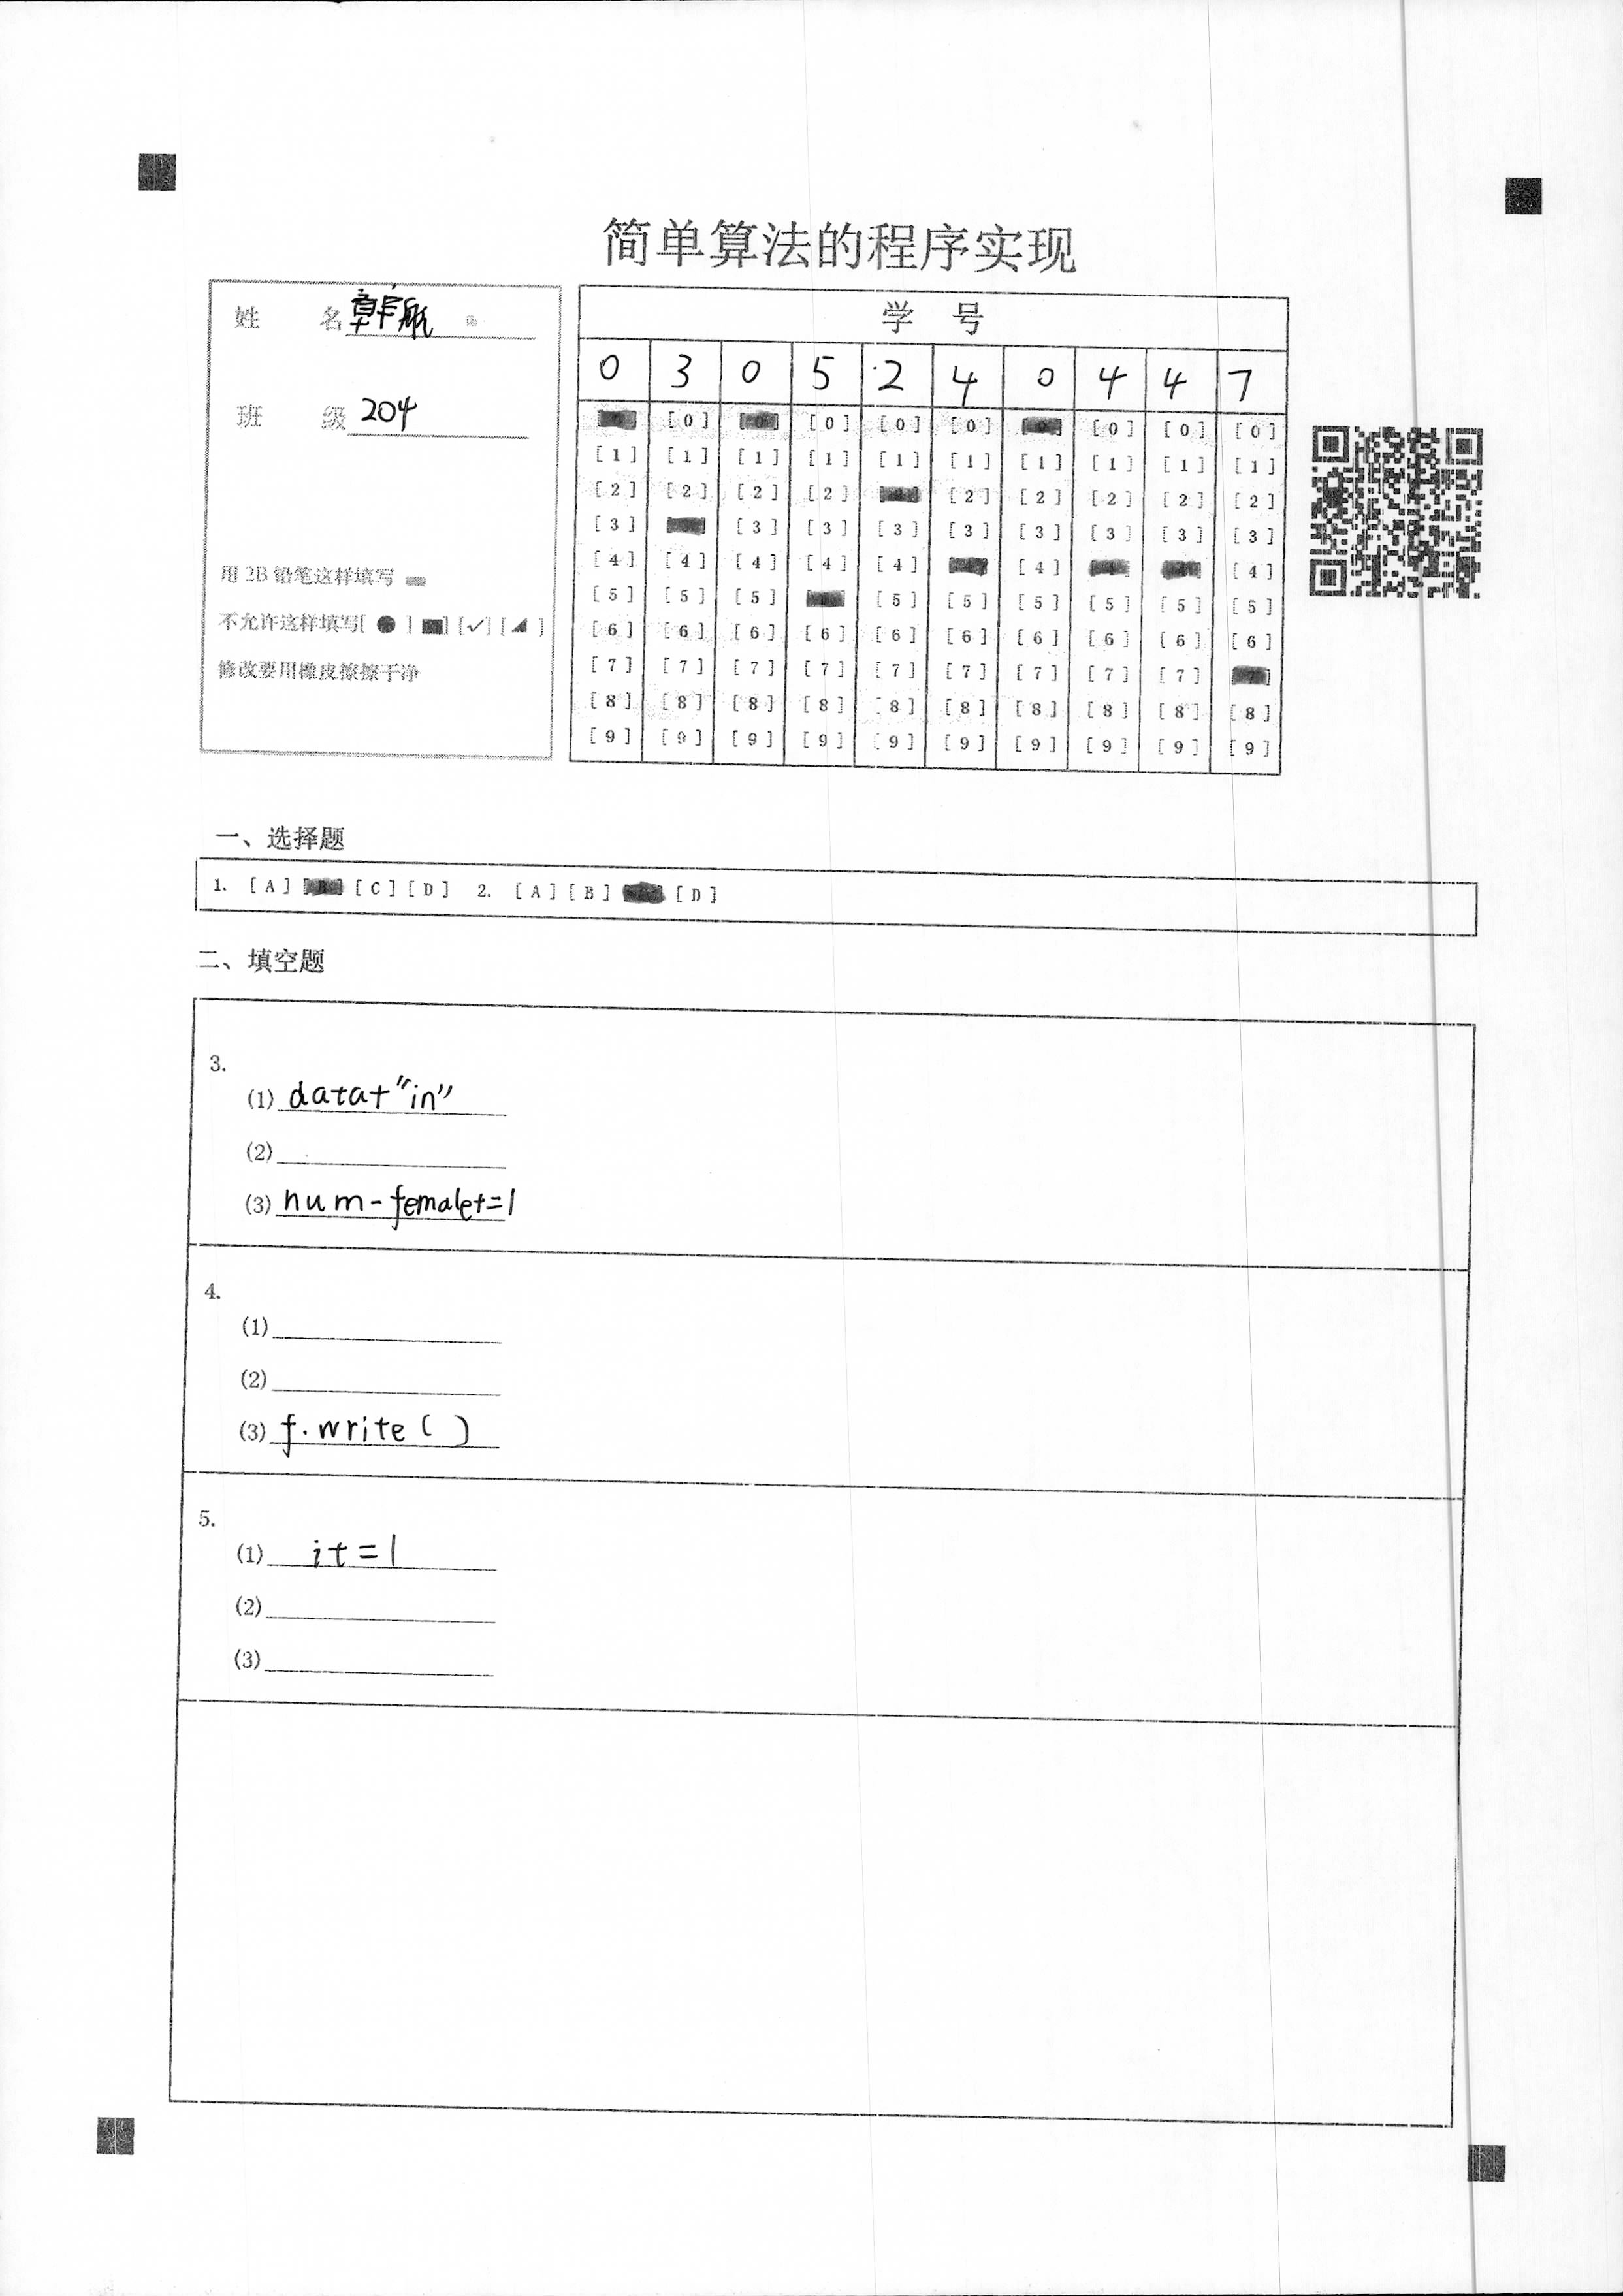 简单算法的程序实现
姓 名
班 级 204
用 2B 铅笔这样填写
不允许这样填写[ ● ] [■] [✓] [◢ ]
修改要用橡皮擦擦干净
学 号
0 3 0 5 2 4 0 4 4 7
[0] [0] [0] [0] [0] [0] [0]
[1] [1] [1] [1] [1] [1] [1] [1] [1] [1]
[2] [2] [2] [2] [2] [2] [2] [2] [2]
[3] [3] [3] [3] [3] [3] [3] [3] [3]
[4] [4] [4] [4] [4] [4] [4]
[5] [5] [5] [5] [5] [5] [5] [5] [5]
[6] [6] [6] [6] [6] [6] [6] [6] [6] [6]
[7] [7] [7] [7] [7] [7] [7] [7] [7]
[8] [8] [8] [8] [8] [8] [8] [8] [8] [8]
[9] [9] [9] [9] [9] [9] [9] [9] [9] [9]
一、选择题
1. [A] [B] [C] [D] 2. [A] [B] [D]
二、填空题
3.
(1) data+"in"
(2)
(3) num-female+=1
4.
(1)
(2)
(3) f.write( )
5.
(1) i+=1
(2)
(3)